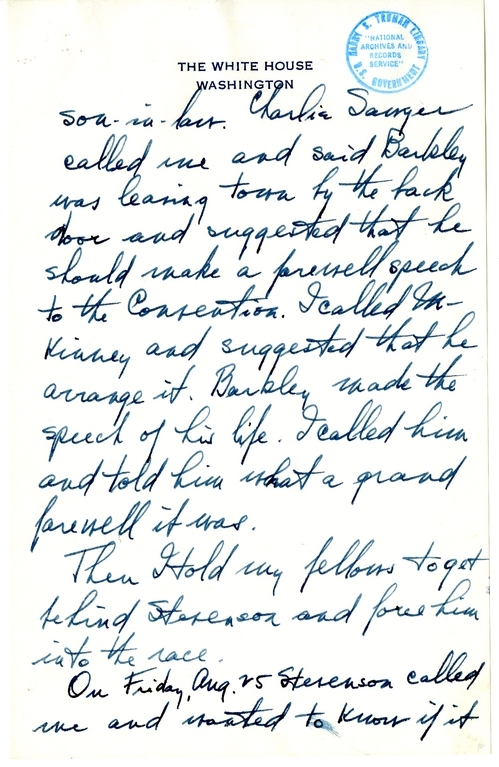 THE WHITE HOUSE
WASHINGTON
HARRY S. TRUMAN LIBRARY
"NATIONAL
ARCHIVES AND
RECORDS
SERVICE"
U.S. GOVERNMENT
son-in-law. Charlie Sawyer
called me and said Barkley
was leaving town by the back
door and suggested that he
should make a farewell speech
to the Convention. I called Mc-
Kinney and suggested that he
arrange it. Barkley made the
speech of his life. I called him
and told him what a grand
farewell it was.
Then I told my fellows to get
behind Stevenson and force him
into the race.
On Friday, Aug. 25 Stevenson called
me and wanted to know if it